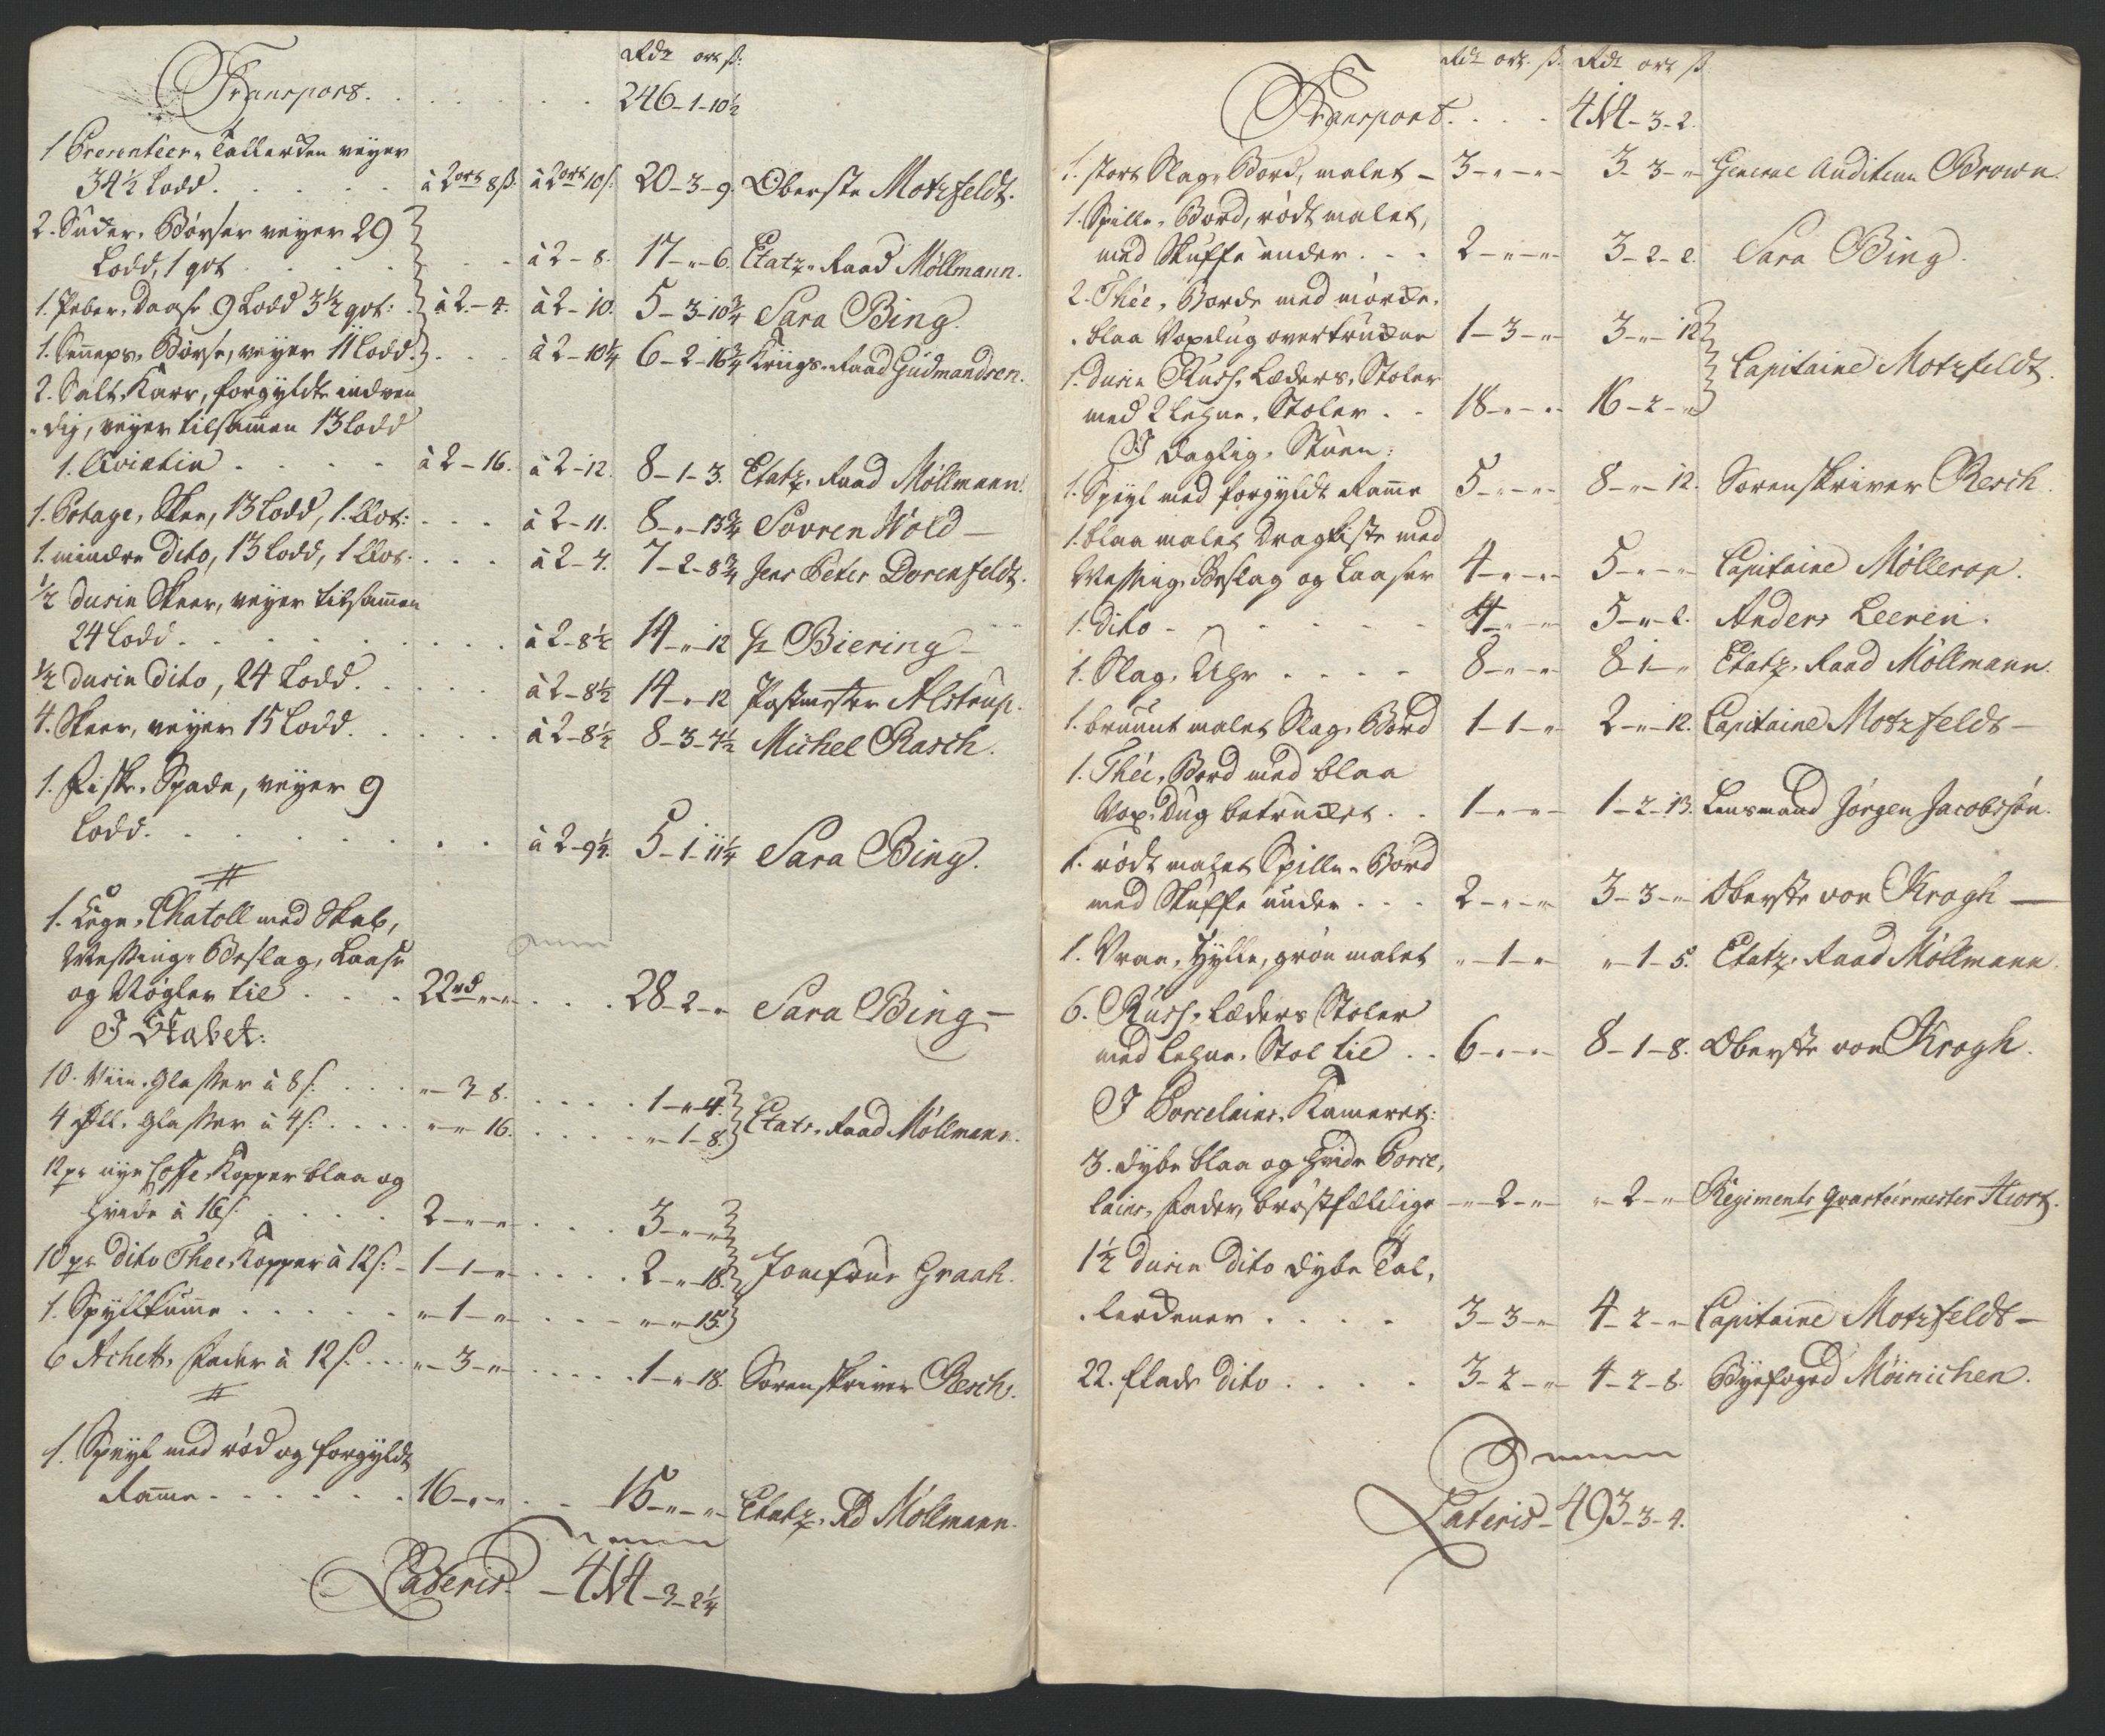 Rdr ort ß:
Transport. . . . . . . 246-1-10½
1 Presenteer-Tallerken veyer
34½ Lodd. . . . . à 2ort 8ß. à 2ort 10ß: 20-3-9. Oberste Motzfeldt.
2. Suder-Bøsser veyer 29
Lodd, 1 qvt . . . . . . à 2-8. 17-"-6. Etatz-Raad Møllmann.
1. Peber-Daase 9 Lodd 3½ qvt: à 2.-4. à 2-10. 5-3-10¾ Sara Bing.
1. Senneps-Bøsse, veyer 11 Lodd. . . . à 2-10¼ 6-2-16¾ Kriigs-Raad Gudmandsen.
2. Salt-Karr, forgyldte indven
-dig, veyer tilsammen 13 Lodd
1. Qvintin . . . . . à 2-16. à 2-12. 8-1-3. Etatz-Raad Møllmann.
1. Potage-Skee, 13 Lodd, 1. Qvt: . . . à 2-11. 8-"-13¾ Søvren Wold —
1. mindre dito, 13 Lodd, 1 Qvt. . . . à 2-4. 7-2-8¾ Jens Peter Dorenfeldt.
½ dusin Skeer, veyer tilsammen
24 Lodd. . . . . . . . à 2-8½ 14-"-12 Hr Biering —
½ dusin dito, 24 Lodd. . . . . à 2-8½ 14-"-12 Postmester Alstrup.
4. Skeer, veyer 15 Lodd. . . . . à 2-8½ 8-3-7½ Michel Rasch.
1. Fiske-Spade, veyer 9
Lodd. . . . . . . . à 2-9¼. 5-1-11¼ Sara Bing.
1. Eege-Chatoll med Skab,
Messing-Beslag, Laase
og Nøgler til . . . 22rd-"-" . . . 28-2-" Sara Bing —
I Skabet:
10. Viin-Glasser à 8ß. . . . "-3-8. . . . . 1-"-4.
4 Øll-Glasser à 4ß: . . . . "-"-16. . . . . "-1-8. Etats-Raad Møllmann.
12 pr nye Coffe-Kopper blaa og
hvide à 16ß . . . . 2-"-" . . . 3-"-"
10 pr dito Thee-Kopper à 12ß: - 1-1-" . . . . 2-"-18. Jomfrue Graah.
1. Spyllkumme . . . . . "-1-" . . . "-"-15.
6 Achett-Fader à 12ß. . . "-3-" . . . . 1-"-18. Sorenskriver Resch.
1. Speyl med rød og forgyldt
Ramme . . . . . . 16-"-" . . 15-"-" Etatz-Rd Møllmann.
Lateris. — 414-3-2¼
Rdr ort. ß. Rdr ort ß
Transport. . . . 414-3-2.
1. stort Slag-Bord, malet - 3-"-" 3-3-" General Auditeur Brown.
1. Spille-Bord, rødt malet,
med Skuffe under . . . 2-"-" 3-2-2. Sara Bing.
2. Thée-Borde med mørke-
-blaa Voxdug overtrukne 1-3-" 3-"-12
1. dusin Russ-Læders-Stoler
med 2 Lehne-Stoler . . 18-"-" 16-2-" Capitaine Motzfeldt.
I Daglig-Stuen:
1. Speyl med forgyldt Ramme 5-"-" 8-"-12. Sorenskriver Resch.
1. blaa malet Dragkiste med
Messing-Beslag og Laaser 4-"-" 5-"-" Capitaine Møllerop.
1. dito - . . . . . 4-"-" 5-"-2. Anders Leeren.
1. Slag-Uhr . . . . 8-"-" 8-1-" Etatz-Raad Møllmann.
1. bruunt malet Slag-Bord 1-1-" 2-"-12. Capitaine Motzfeldt —
1. Thée-Bord med blaa
Vox-Dug betrukket . . 1-"-" 1-2-13. Lensmand Jørgen Jacobssøn.
1. rødt malet Spille-Bord
med Skuffe under . . . 2-"-" 3-3-" Oberste von Krogh —
1. Vraa-Hylle, grøn malet "-1-" "-1-5. Etatz-Raad Møllmann.
6. Russ-Læders Stoler
med Lehne-Stol til . . 6-"-" 8-1-8. Oberste von Krogh.
I Porcelains-Kameret:
3. dybe blaa og hvide Porce-
lains-Fader, brøstfældige "-2-" "-2-" Regiments Qvarteermester Hiort.
1½ dusin dito dybe Tal-
-lerkener . . . . 3-3-" 4-2-" Capitaine Motzfeldt —
22. flade dito . . . . 3-2-" 4-2-8. Byefoged Møinichen.
Lateris - 493-3-4.